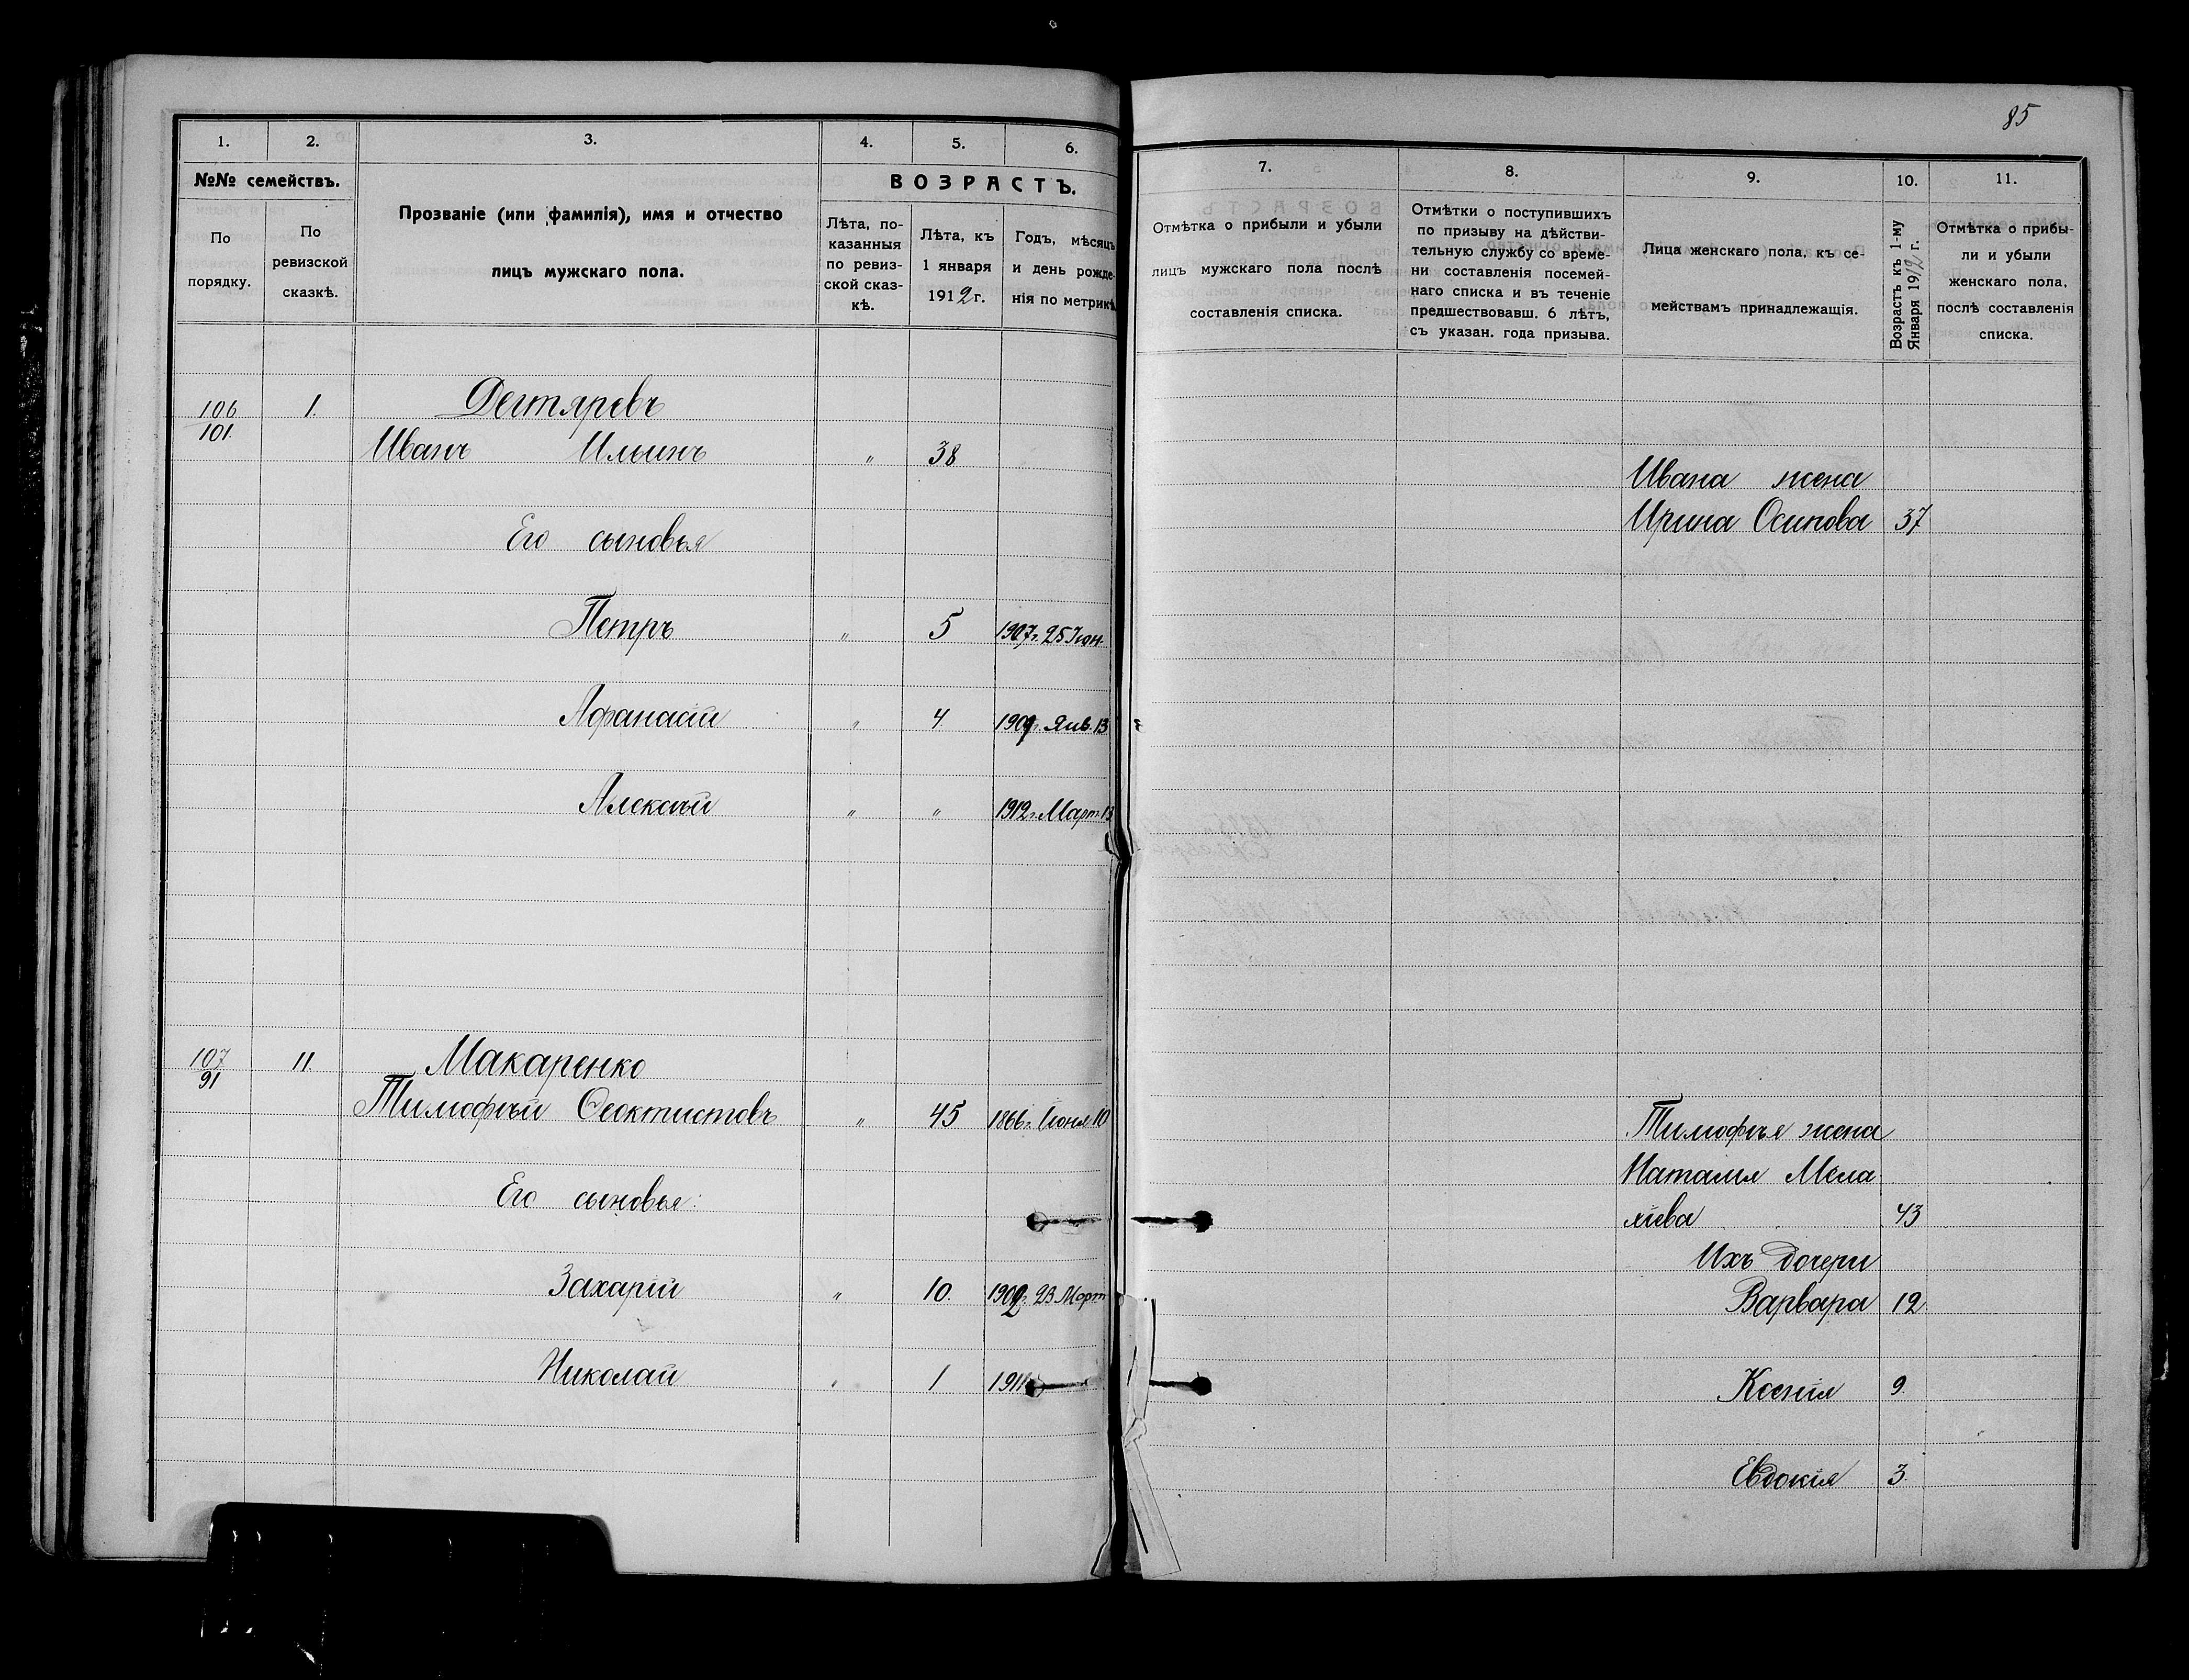 85
1. 2. 3. 4. 5. 6.
№№ семействъ.
По порядку.
По ревизской сказкѣ.
Прозваніе (или фамилія), имя и отчество
лицъ мужскаго пола.
ВОЗРАСТЪ.
Лѣта, по-
казанныя
по ревиз-
ской сказ-
кѣ.
Лѣта, къ
1 января
1912 г.
Годъ, мѣсяцъ
и день рожде-
нія по метрикѣ
7. 8. 9. 10. 11.
Отмѣтка о прибыли и убыли
лицъ мужскаго пола послѣ
составленія списка.
Отмѣтки о поступившихъ
по призыву на дѣйстви-
тельную службу со време-
ни составленія посемей-
наго списка и въ теченіе
предшествовавш. 6 лѣтъ,
съ указан. года призыва.
Лица женскаго пола, къ се-
мействамъ принадлежащія.
Возрастъ къ 1-му
Января 1912 г.
Отмѣтка о прибы-
ли и убыли
женскаго пола,
послѣ составленія
списка.
106 1. Дегтяревъ
101.
Иванъ Ильинъ " 38
Его сыновья
Петръ " 5 1907 г. 25 Іюн.
Афанасій " 4 1909 г. Янв. 13
Алексѣй " " 1912 г. Март. 13
107 11. Макаренко
91
Тимофѣй Феоктистовъ " 45 1866 г. Іюня 10
Его сыновья:
Захарій " 10. 1902 г. 23 Март
Николай " 1 1911
Ивана жена
Ирина Осипова 37
Тимофѣя жена
Наталія Мела
хіева 43
Ихъ дочери
Варвара 12
Ксенія 9.
Евдокія 3.